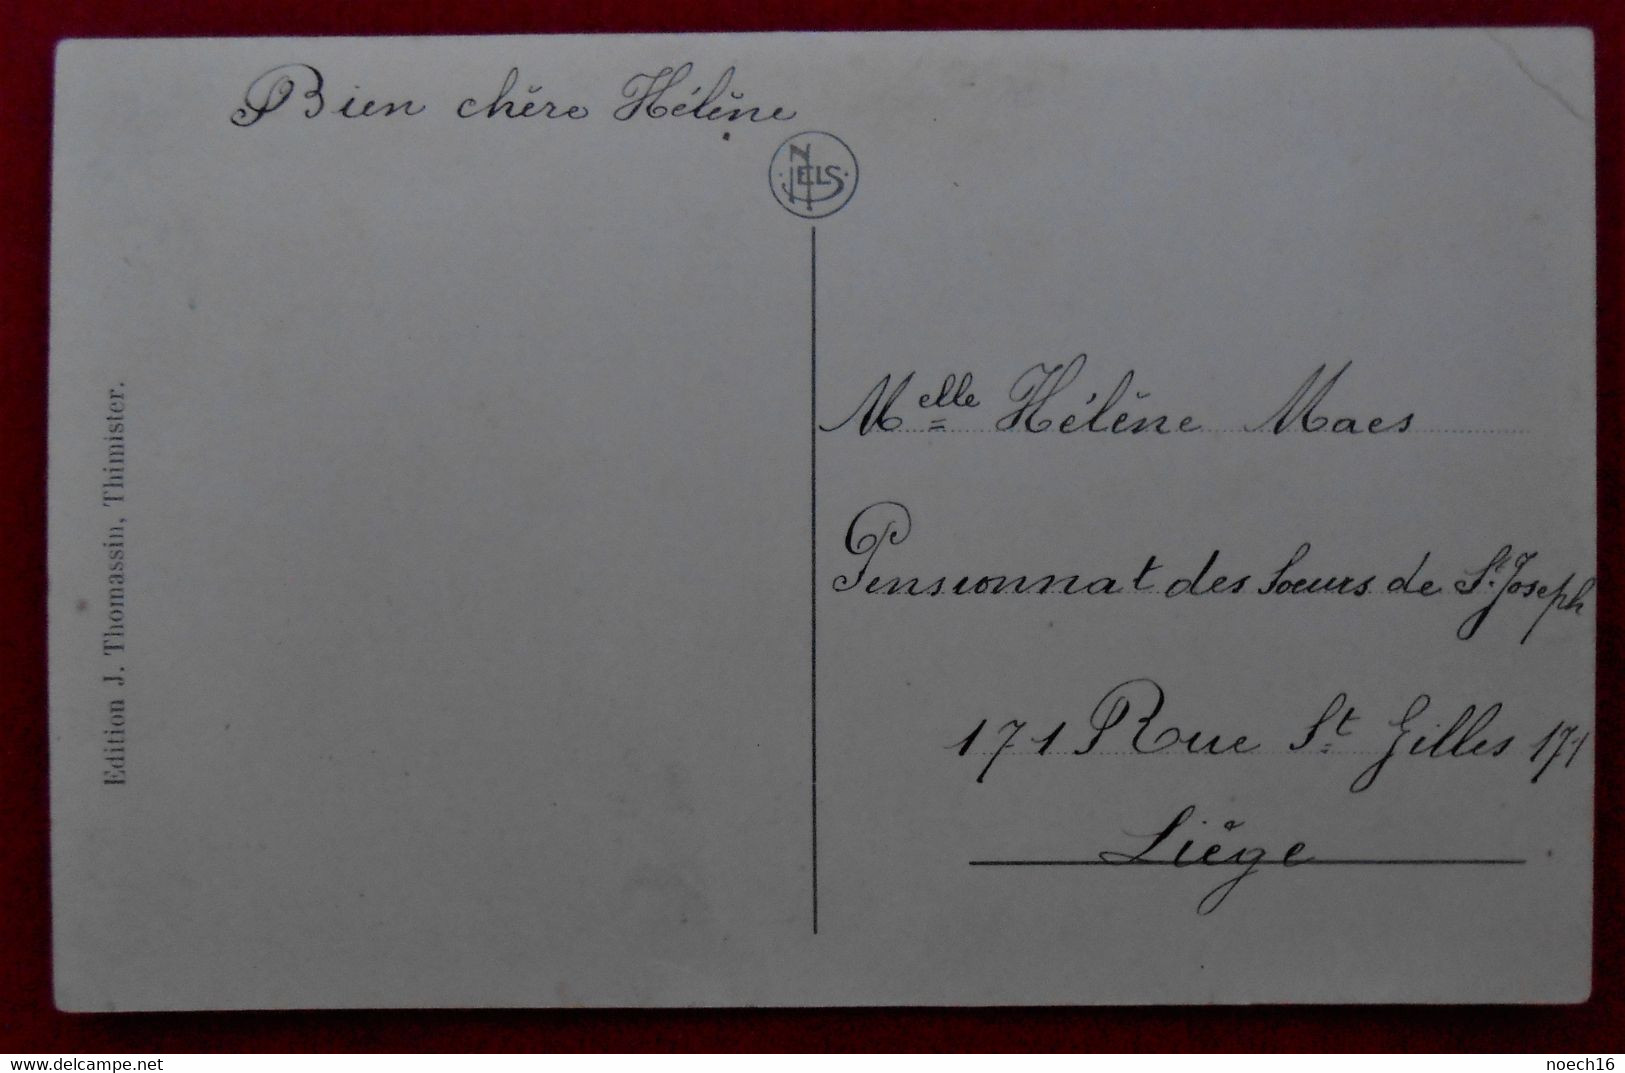 Bien chère Hélène
NELS
Edition J. Thomassin, Thimister.
Melle Hélène Maes
Pensionnat des Soeurs de St. Joseph
171 Rue St Gilles 171
Liège
delcampe.net
noech16